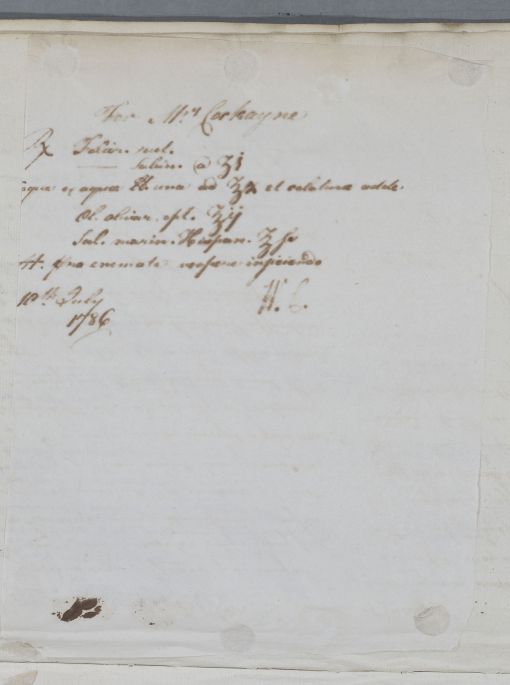 For Mrs Cockayne
℞ Folior. rut.
—— sabin. a ʒj
Coque ex aquæ ℔ una ad ℥x et colaturæ adde.
Ol. olivar. opt. ℥ij
Sal. marin. Hispan. ℥ſs
ft. pro enemate vespere injiciendo
10th July
1786
W. C.